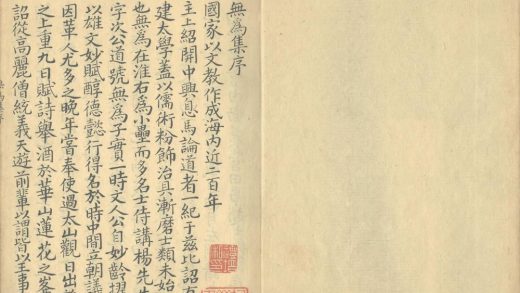 無為集序
國家以文教作成海內近二百年
主上紹開中興息馬論道者一紀于茲比詔有
建太學蓋以儒術粉飾治具漸磨士類未始
也無為在淮右為小壘而多名士侍講楊先生
字次公道號無為子實一時文人公自妙齡擢
以雄文妙賦醇德懿行得名於時中間立朝議
因革人尤多之晚年嘗奉使過太山觀日出
之上重九日賦詩舉酒於華山蓮花之峯
詔從高麗僧統義天遊前輩以謂皆以王事